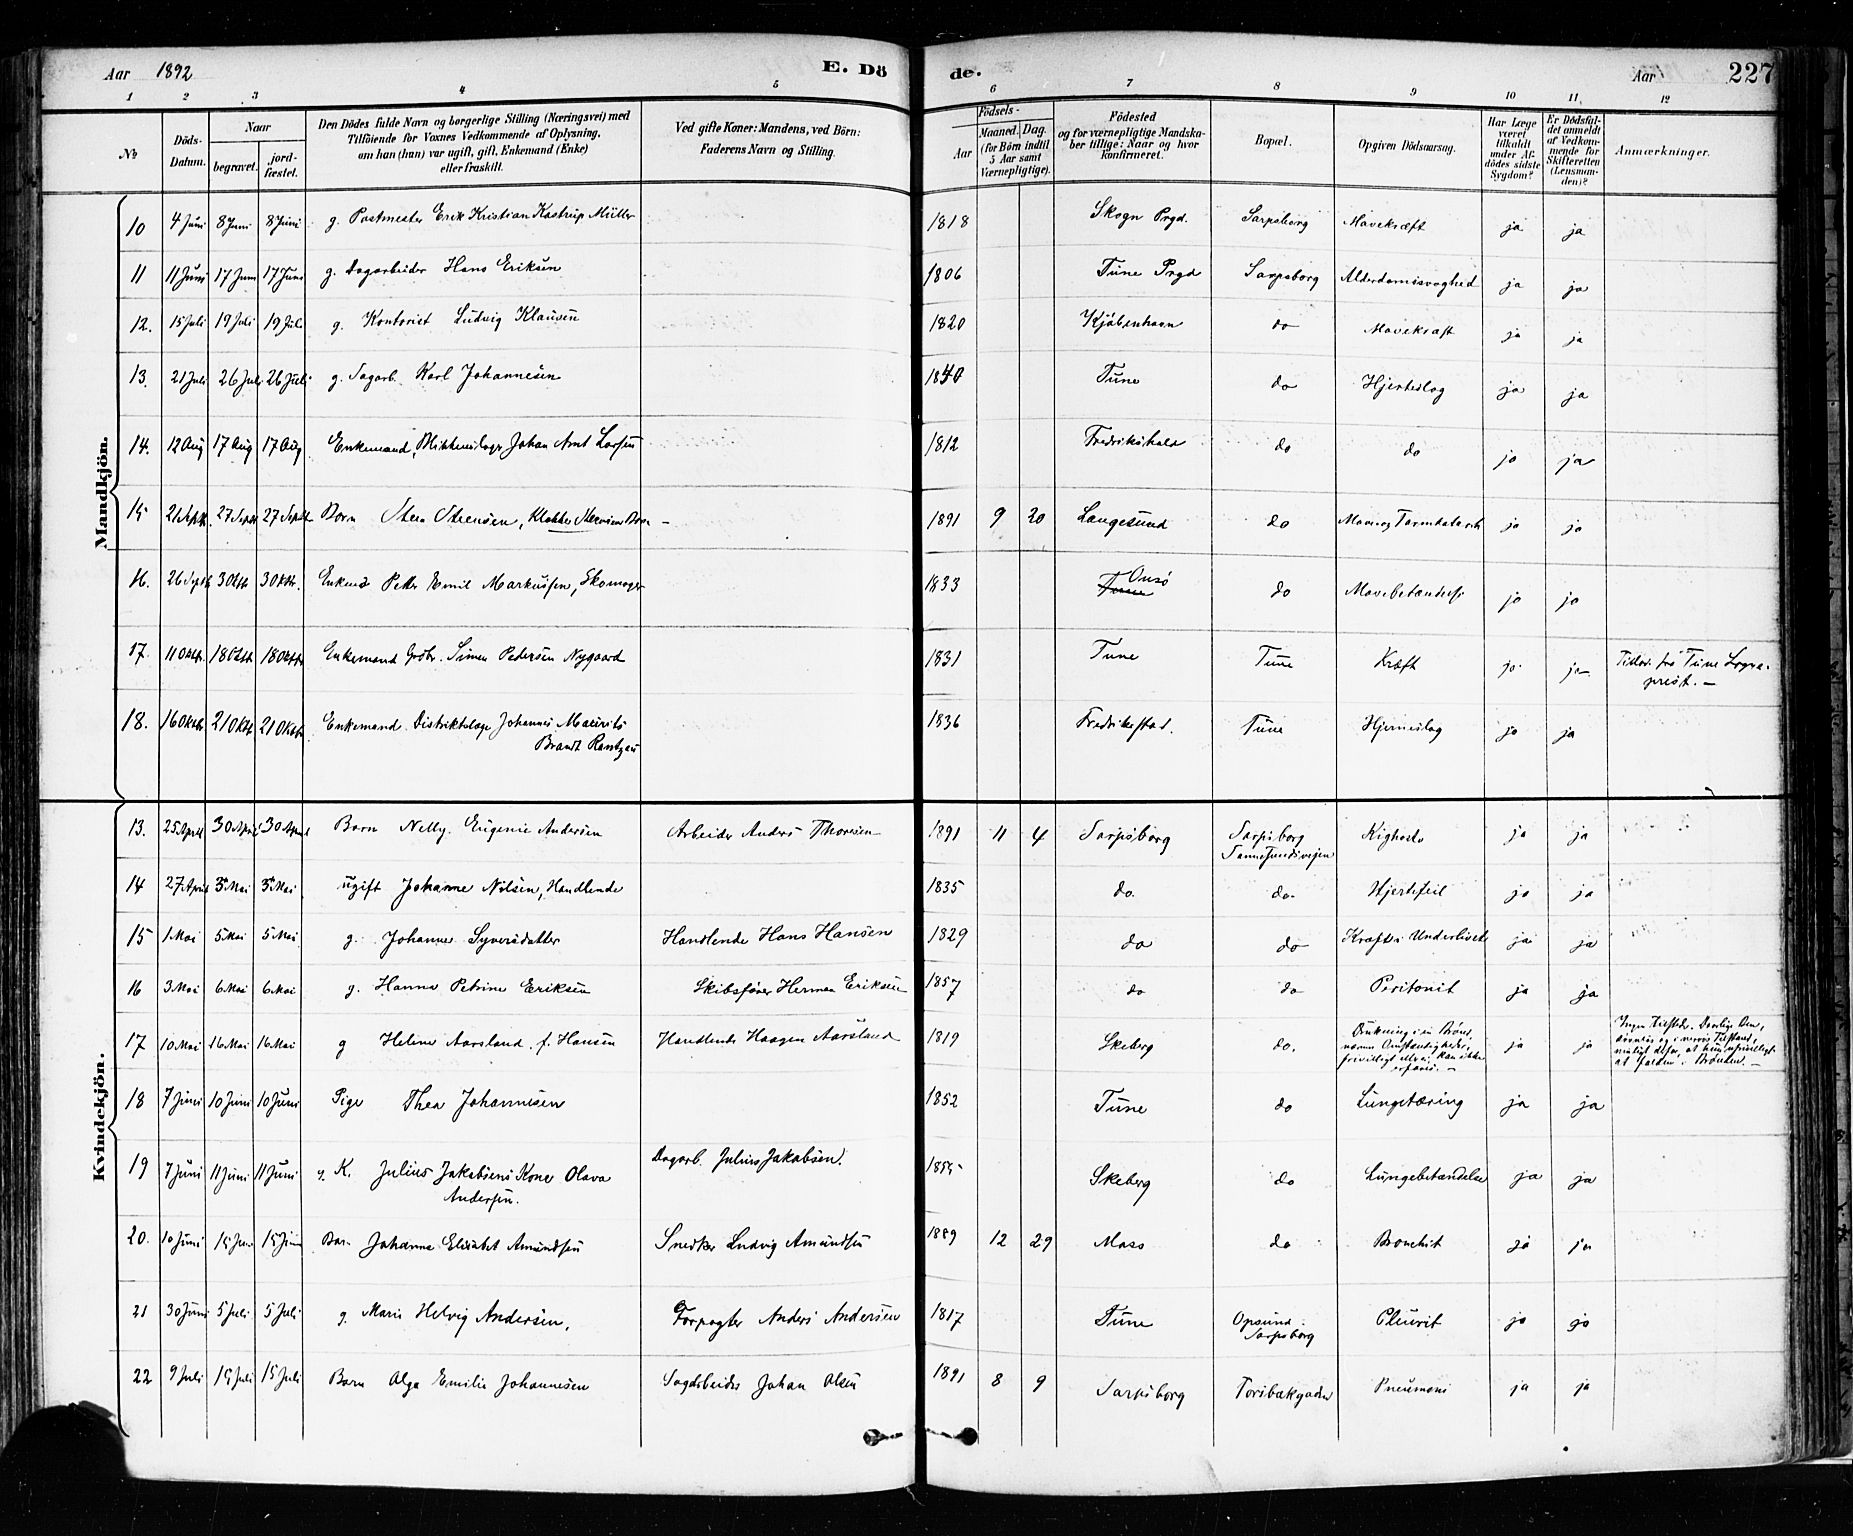 Aar 1892 E. Dö de. Aar 227
1 2 3 4 5 6 7 8 9 10 11 12
№ Döds-Datum. Naar begravet. jord-fæstet. Den Dödes fulde Navn og borgerlige Stilling (Næringsvei) med Tilföiende for Voxnes Vedkommende af Oplysning, om han (hun) var ugift, gift, Enkemand (Enke) eller fraskilt. Ved gifte Koner: Mandens, ved Börn: Faderens Navn og Stilling. Födsels- Aar Maaned. Dag. (for Börn indtil 5 Aar samt Værnepligtige). Födested og for værnepligtige Mandskaber tillige: Naar og hvor konfirmeret. Bopæl. Opgiven Dödsaarsag. Har Læge været tilkaldt under Afdödes sidste Sygdom? Er Dödsfaldet anmeldt af Vedkommende for Skifteretten (Lensmanden)? Anmærkninger.
Mandkjön.
10 4 Juni 8 Juni 8 Juni g. Postmester Erik Kristian Kastrup Müller 1818 Skogn Prgd. Sarpsborg Mavekræft ja ja
11 11 Juni 17 Juni 17 Juni g. Dagarbeider Hans Eriksen 1806 Tune Prgd Sarpsborg Alderdomssvaghed ja ja
12. 15 Juli 19 Juli 19 Juli g. Kontorist Ludvig Klausen 1820 Kjöbenhavn do Mavekræft ja ja
13. 21 Juli 26 Juli 26 Juli g. Sagarb. Karl Johannesen 1840 Tune do Hjerteslag ja ja
14. 12 Aug 17 Aug 17 Aug Enkemand, Blikkenslager Johan Arnt Larsen 1812 Fredrikshald do do ja ja
15 21 Septb. 27 Septb 27 Septb Barn 1891 9 20 Langesund do Mave og Tarmkatarrh ja ja
16. 26 Septb 3 Oktb 3 Oktbr. Enkemd Petter Emil Markussen, Skomager 1833 Tune Onsö do Mavebetændelse ja ja
17. 11 Oktbr. 18 Oktb 18 Oktbr Enkemand Gbr. Simen Pedersen Nygaard 1831 Tune Tune Kræft ja ja Tilhör. fra Tune Sogne-
prest. —
18. 16 Oktbr 21 Oktb 21 Oktbr Enkemand Distriktslæge Johannes Mauritz
Brandt Rantzau 1836 Fredrikstad. Tune Hjerneslag ja ja
Kvindekjön.
13. 25 April 30 April 30 April Barn Nelly Eugenie Andersen Arbeider Anders Thoresen 1891 11 4 Sarpsborg Sarpsborg
Sannesundsveien Kighoste ja ja
14 27 April 3 Mai 3 Mai ugift Johanne Nilsen, Handlende 1835 do. do. Hjertefeil ja ja
15 1 Mai 5 Mai 5 Mai g. Johanne Syversdatter Handlende Hans Hansen 1829 do do Kræft i Underlivet ja ja
16 3 Mai 6 Mai 6 Mai g. Hanna Petrine Eriksen Skibsförer Herman Eriksen 1857 do do Peritonit ja ja
17 10 Mai 16 Mai 16 Mai g Heline Aarsland f. Hansen Handlende Haagen Aarsland 1819 Skeberg do. Drukning i en Brönd,
nærm Omstændigheder,
frivilligt eller ei kan ikke
erfares. — ja ja
18 7 Juni 10 Juni 10 Juni Pige Thea Johannesen 1852 Tune do Lungetæring ja ja
19 7 Juni 11 Juni 11 Juni g. K. Julius Jakobsens Kone Olava
Andersen. Dagarb. Julius Jakobsen. 1855 Skeberg do Lungebetændelse ja ja
20. 10 Juni 15 Juni 15 Juni Barn Johanna Elisabet Amundsen Snedker Ludvig Amundsen 1889 12 29 Moss do Bronchit ja ja
21 30 Juni 5 Juli 5 Juli g. Marie Helvig Andersen. Forpagter Anders Andersen 1817 Tune Opsund
Sarpsborg Pleurit ja ja
22 9 Juli 15 Juli 15 Juli Barn Alga Emilie Johannesen Sagarbeider Johan Olsen 1891 8 9 Sarpsborg Torsbækgaden Pneumoni ja ja